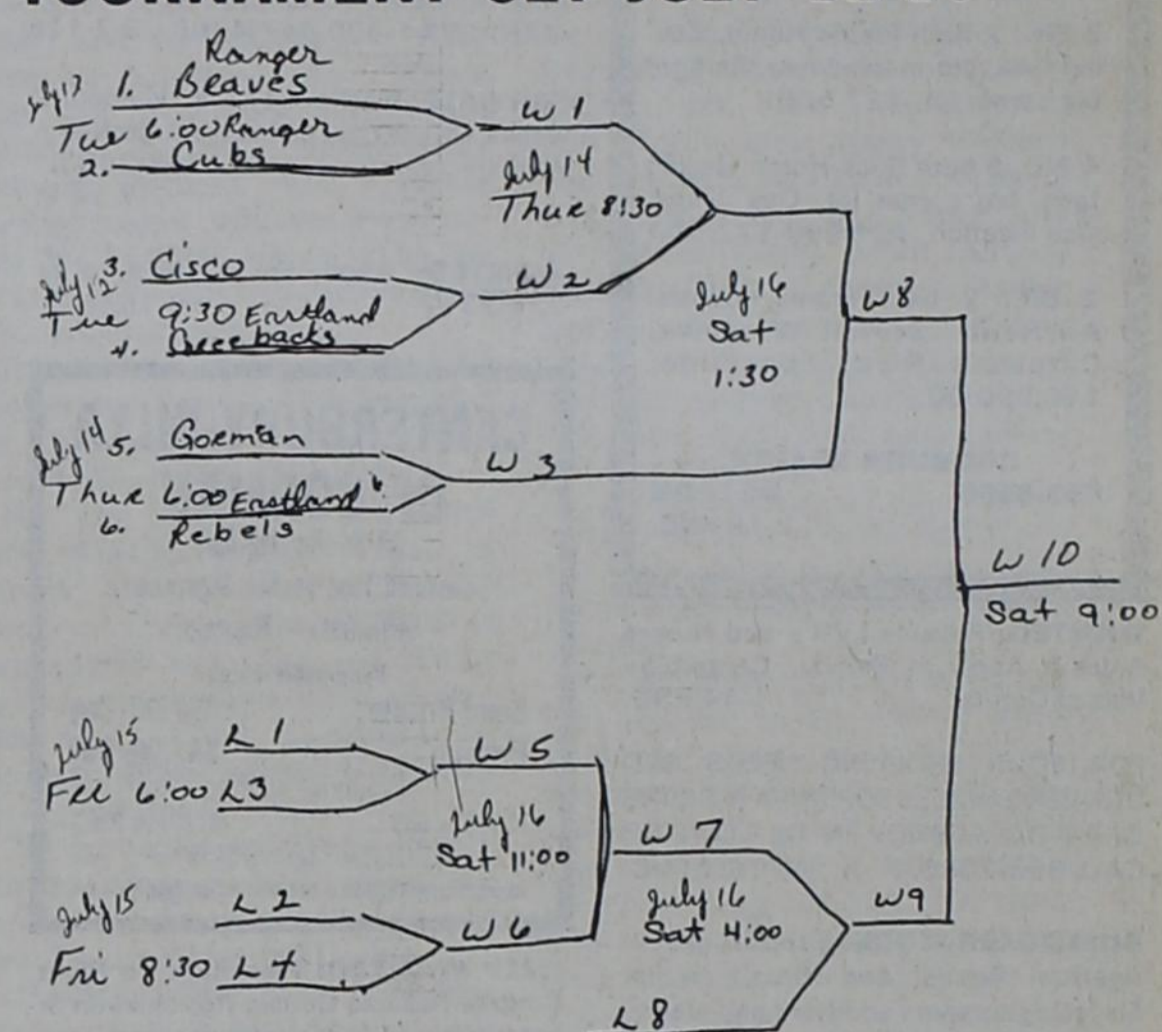 Ranger
July 13 1. Beaves
Tue 6:00 Ranger
2. Cubs
W 1
July 14
Thur 8:30
July 12 3. Cisco
Tue 9:30 Eastland
4. backs
W 2
July 16
Sat
1:30
W8
July 14 5. Gorman
Thur 6:00 Eastland
6. Rebels
W 3
W 10
Sat 9:00
July 15
L 1
Fri 6:00 L3
W 5
July 16
Sat 11:00
W 7
July 15
L 2
Fri 8:30 L 4
W 6
July 16
Sat 4:00
W9
L 8